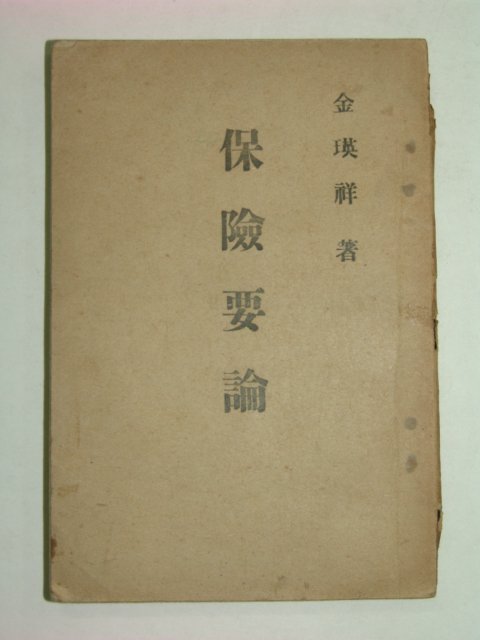 金瑛祥著
保險要論